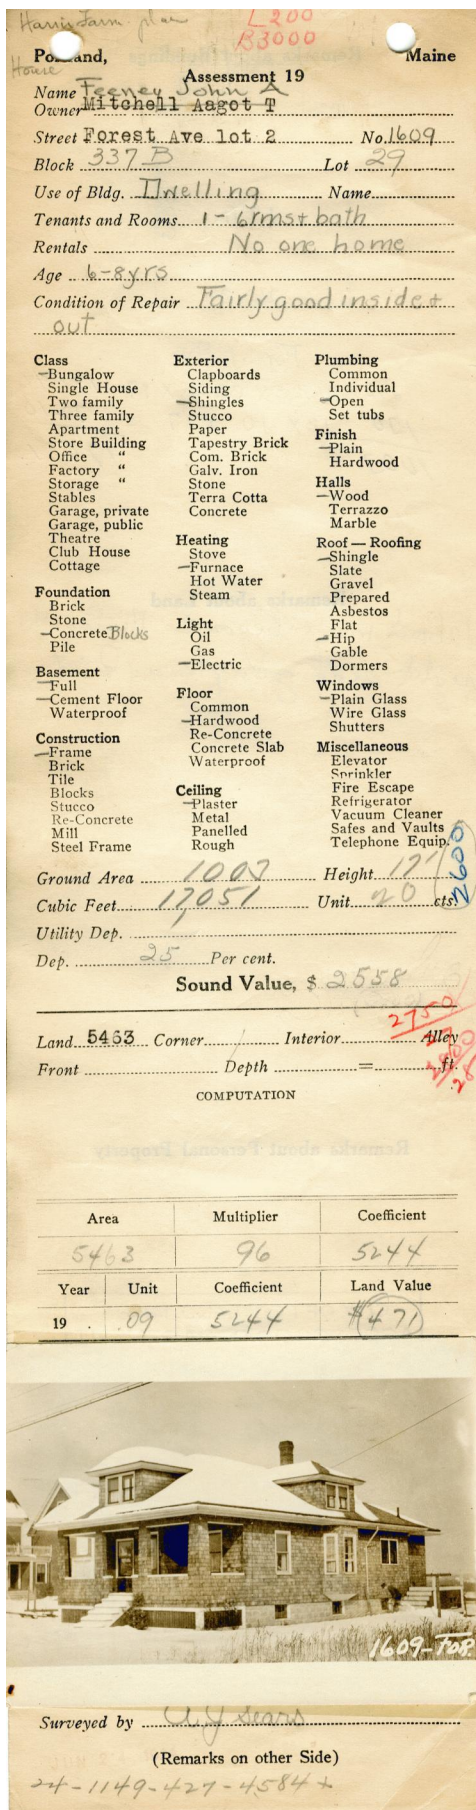 Harris Farm plan
L 200
B 3000
Portland, Maine
House
Assessment 19
Name Feeney John A
Owner Mitchell Aagot T
Street Forest Ave lot 2 No. 1609
Block 337 B Lot 29
Use of Bldg. Dwelling Name
Tenants and Rooms 1 - 6 rms + bath
Rentals No one home
Age 6-8 yrs
Condition of Repair Fairly good inside +
out
Class
Bungalow
Single House
Two family
Three family
Apartment
Store Building
Office "
Factory "
Storage "
Stables
Garage, private
Garage, public
Theatre
Club House
Cottage
Foundation
Brick
Stone
Concrete Blocks
Pile
Basement
Full
Cement Floor
Waterproof
Construction
Frame
Brick
Tile
Blocks
Stucco
Re-Concrete
Mill
Steel Frame
Exterior
Clapboards
Siding
Shingles
Stucco
Paper
Tapestry Brick
Com. Brick
Galv. Iron
Stone
Terra Cotta
Concrete
Heating
Stove
Furnace
Hot Water
Steam
Light
Oil
Gas
Electric
Floor
Common
Hardwood
Re-Concrete
Concrete Slab
Waterproof
Ceiling
Plaster
Metal
Panelled
Rough
Plumbing
Common
Individual
Open
Set tubs
Finish
Plain
Hardwood
Halls
Wood
Terrazzo
Marble
Roof — Roofing
Shingle
Slate
Gravel
Prepared
Asbestos
Flat
Hip
Gable
Dormers
Windows
Plain Glass
Wire Glass
Shutters
Miscellaneous
Elevator
Sprinkler
Fire Escape
Refrigerator
Vacuum Cleaner
Safes and Vaults
Telephone Equip.
2600
Ground Area 1003 Height 17'
Cubic Feet 17051 Unit 20 cts.
Utility Dep.
Dep. 25 Per cent.
Sound Value, $ 2558
2750
Land 5463 Corner Interior Alley
Front Depth = ft.
COMPUTATION
Area Multiplier Coefficient
5463 96 5244
Year Unit Coefficient Land Value
19 . .09 5244 $471
1609-FOR.
Surveyed by A J Sears
(Remarks on other Side)
24-1149-427-4584+